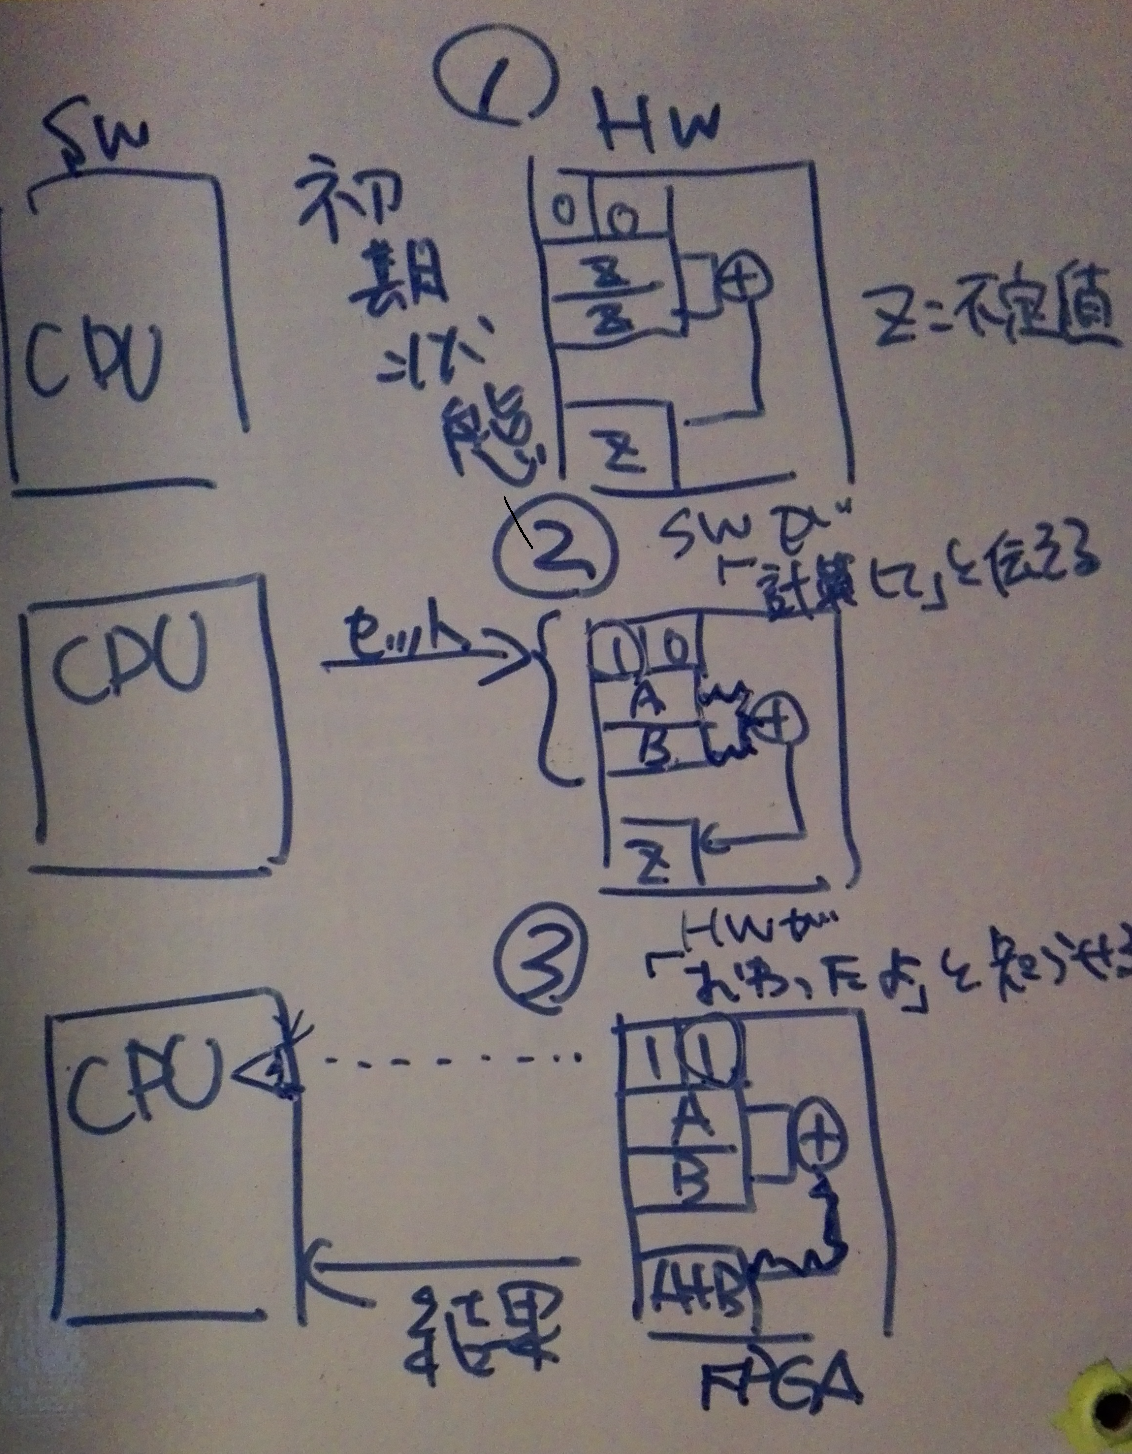 ①
SW
HW
初期状態
0 0
Z
Z
+
Z=不定値
CPU
Z
②
SWが
「計算して」と伝える
CPU
セット
1 0
A
B
+
Z
③
HWが
「おわったよ」と知らせる
CPU
1 1
A
B
+
A+B
結果
FPGA